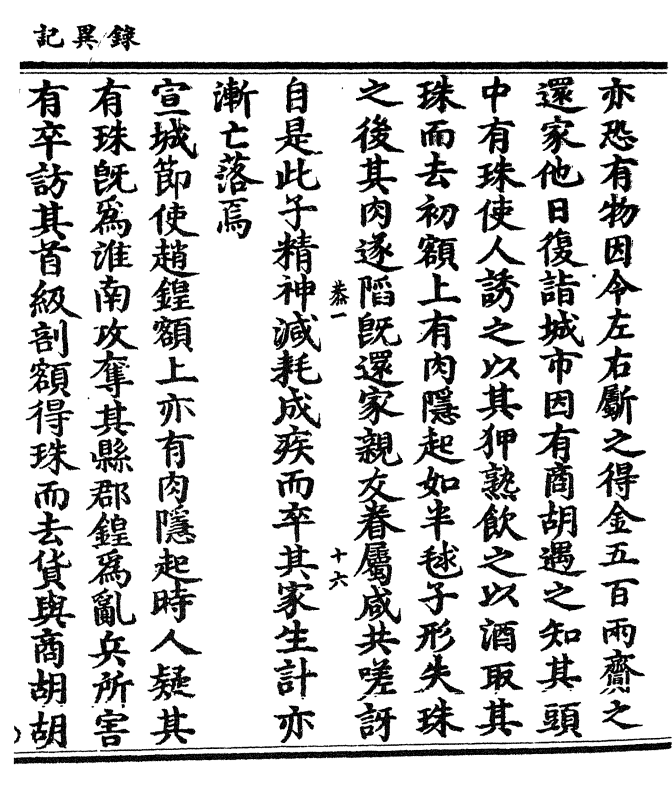 錄異記
亦恐有物因令左右斸之得金五百兩齎之
還家他日復詣城市因有商胡遇之知其頭
中有珠使人誘之以其狎熟飲之以酒取其
珠而去初額上有肉隱起如半毬子形失珠
之後其肉遂陷既還家親友眷屬咸共嗟訝
卷一
十六
自是此子精神減耗成疾而卒其家生計亦
漸亡落焉
宣城節使趙鍠額上亦有肉隱起時人疑其
有珠既為淮南攻奪其縣郡鍠為亂兵所害
有卒訪其首級剖額得珠而去貨與商胡胡